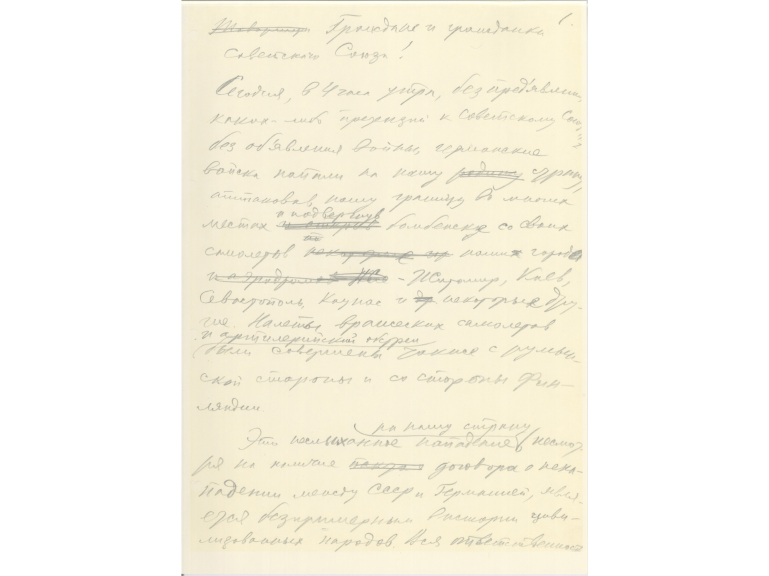 1.
Товарищи Граждане и гражданки
Советского Союза!
Сегодня, в 4 часа утра, без предъявления
каких-либо претензий к Советскому Союзу,
без объявления войны, германские
войска напали на нашу родину страну,
аттаковав нашу границу во многих
и подвергнув
местах бомбежке со своих
самолетов наши города
и аэродромы - Житомир, Киев,
Севастополь, Каунас и др некоторые дру-
гие. Налеты вражеских самолетов
и артиллерийский обстрел
были совершены также с румын-
ской стороны и со стороны Фин-
ляндии
на нашу страну
Это неслыханное нападение несмот-
ря на наличие договора о нена-
падении между СССР и Германией, явля-
ется безпримерным в истории циви-
лизованных народов Вся ответственность